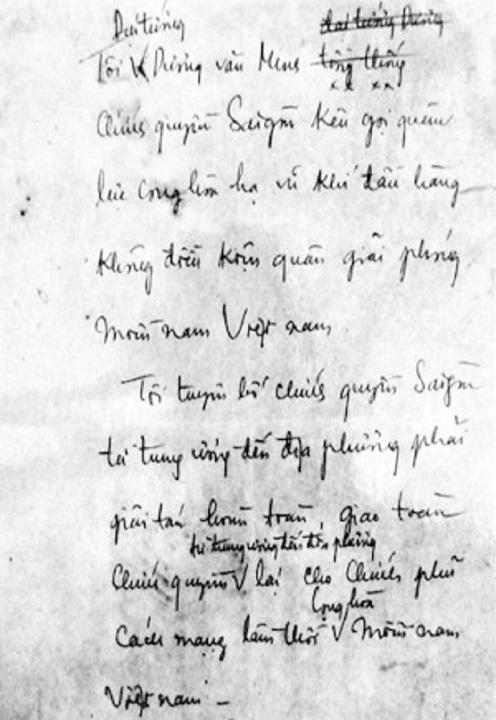 Đại tướng đại tướng Dương
Tôi V Dương văn Minh tổng thống
Chính quyền Saigon kêu gọi quân
lực cộng hòa hạ vũ khí đầu hàng
không điều kiện quân giải phóng
miền nam Việt nam
Tôi tuyên bố chính quyền Saigon
từ trung ương đến địa phương phải
giải tán hoàn toàn, giao toàn
từ trung ương đến địa phương
Chính quyền V lại cho Chính phủ
Cộng hòa
Cách mạng lâm thời V miền nam
Việt nam –